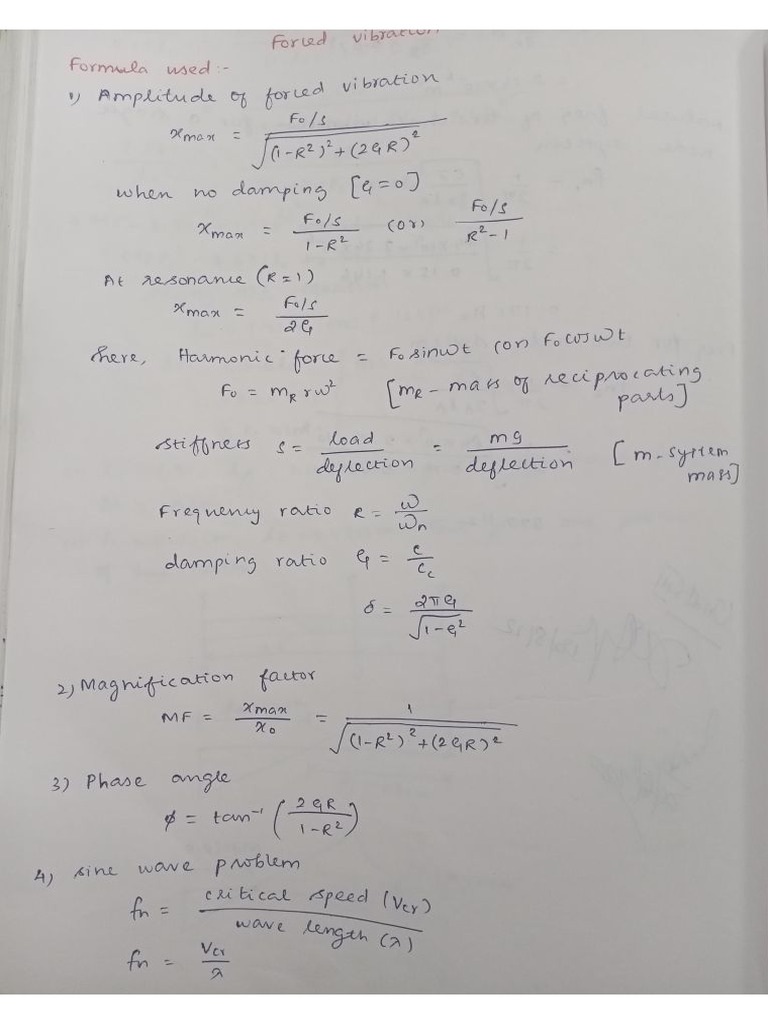 Forced vibration
Formula used:-
1) Amplitude of forced vibration
xmax = F0/s / √((1-R²)²+(2ξR)²)
when no damping [ξ=0]
xmax = F0/s / 1-R² (or) F0/s / R²-1
At resonance (R=1)
xmax = F0/s / 2ξ
here, Harmonic force = F0 sinωt (or) F0 cosωt
F0 = mR rω² [mR - mass of reciprocating parts]
stiffness s = load / deflection = mg / deflection [m - system mass]
Frequency ratio R = ω / ωn
damping ratio ξ = c / cc
δ = 2πξ / √(1-ξ²)
2) Magnification factor
MF = xmax / x0 = 1 / √((1-R²)²+(2ξR)²)
3) Phase angle
φ = tan⁻¹ (2ξR / 1-R²)
4) sine wave problem
fn = critical speed (Vcr) / wave length (λ)
fn = Vcr / λ